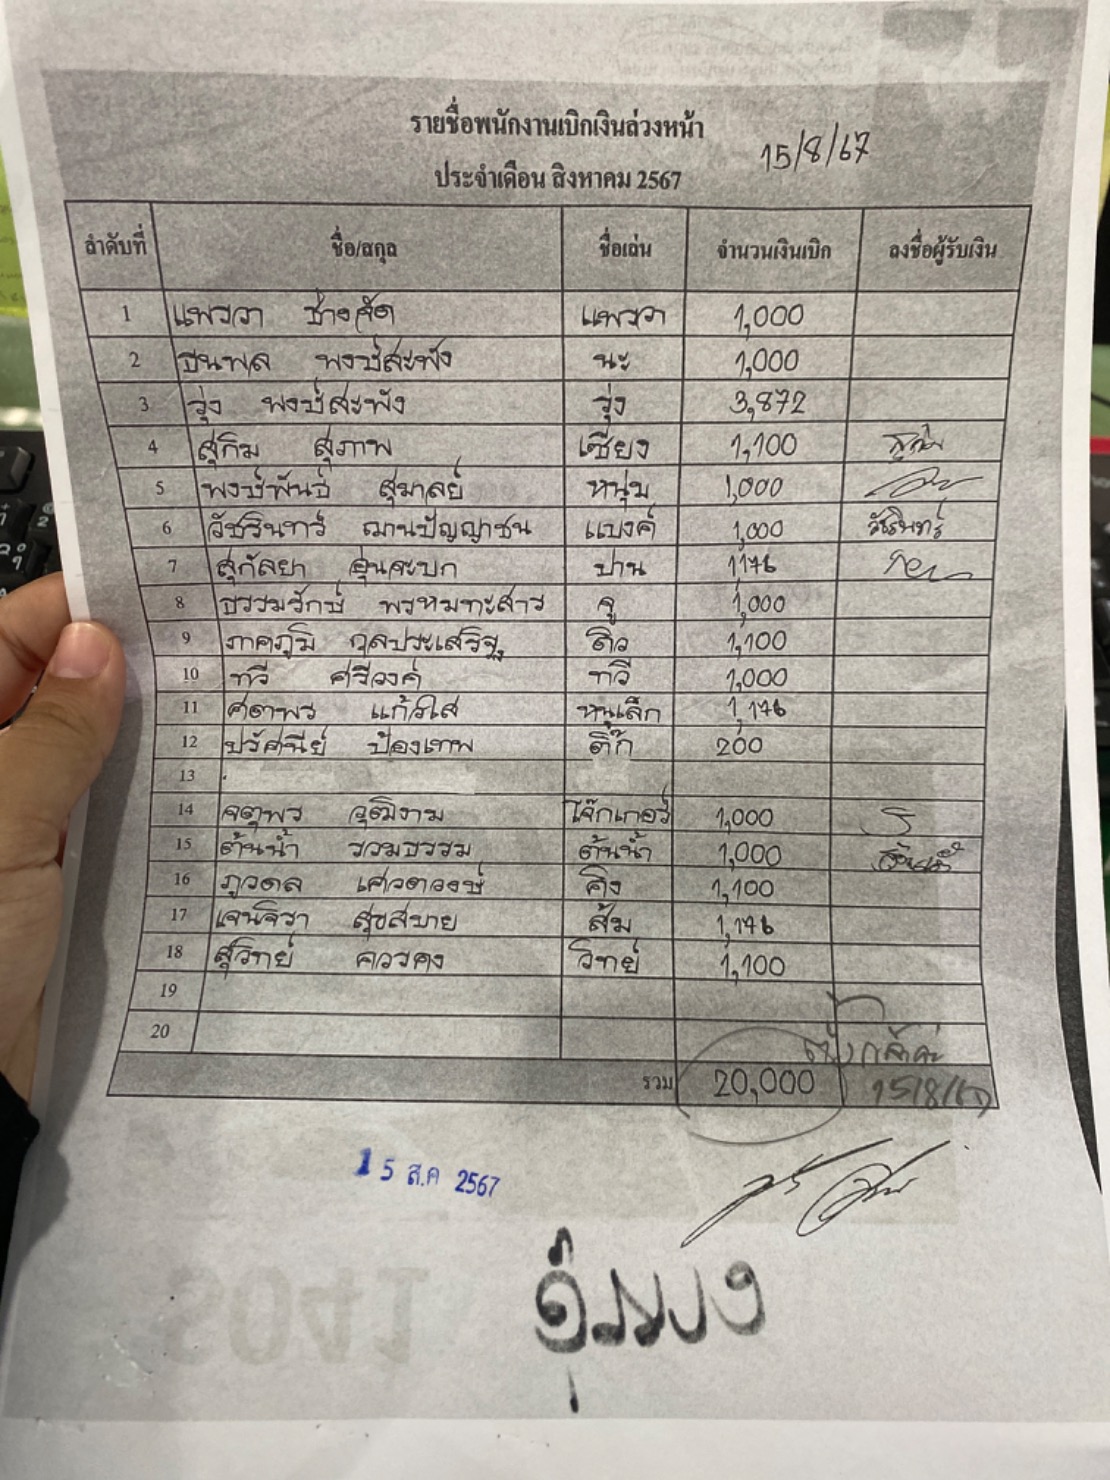 รายชื่อพนักงานเบิกเงินล่วงหน้า
15/8/67
ประจำเดือน สิงหาคม 2567
ลำดับที่ ชื่อ/สกุล ชื่อเล่น จำนวนเงินเบิก ลงชื่อผู้รับเงิน
1 แพรวา ช่างจัด แพรวา 1,000
2 ธนพล พงษ์สะพัง นะ 1,000
3 รุ่ง พงษ์สะพัง รุ่ง 3,872
4 สุกิม สุภาพ เซียง 1,100
5 พงษ์พันธ์ สุมาลย์ หนุ่ม 1,000
6 วัชรินทร์ ฌานปัญญาชน แบงค์ 1,000 วัชรินทร์
7 สุกัลยา ปาน 1176
8 ธรรมรักษ์ พรหมทะสาร จู 1,000
9 ภาคภูมิ กุลประเสริฐ ดิว 1,100
10 ทวี ศรีวงค์ ทวี 1,000
11 ศตพร แก้วใส หนูเล็ก 1,176
12 ปรัศนีย์ ป้องเทพ ติ๊ก 200
13
14 จตุพร วุฒิงาม โจ๊กเกอร์ 1,000
15 ต้นน้ำ รวมธรรม ต้นน้ำ 1,000
16 ภูวดล เศวตวงษ์ คิง 1,100
17 เจนจิรา สุขสบาย ส้ม 1,176
18 สุวิทย์ ควรคง วิทย์ 1,100
19
20
รวม 20,000 15/8/67
15 ส.ค 2567